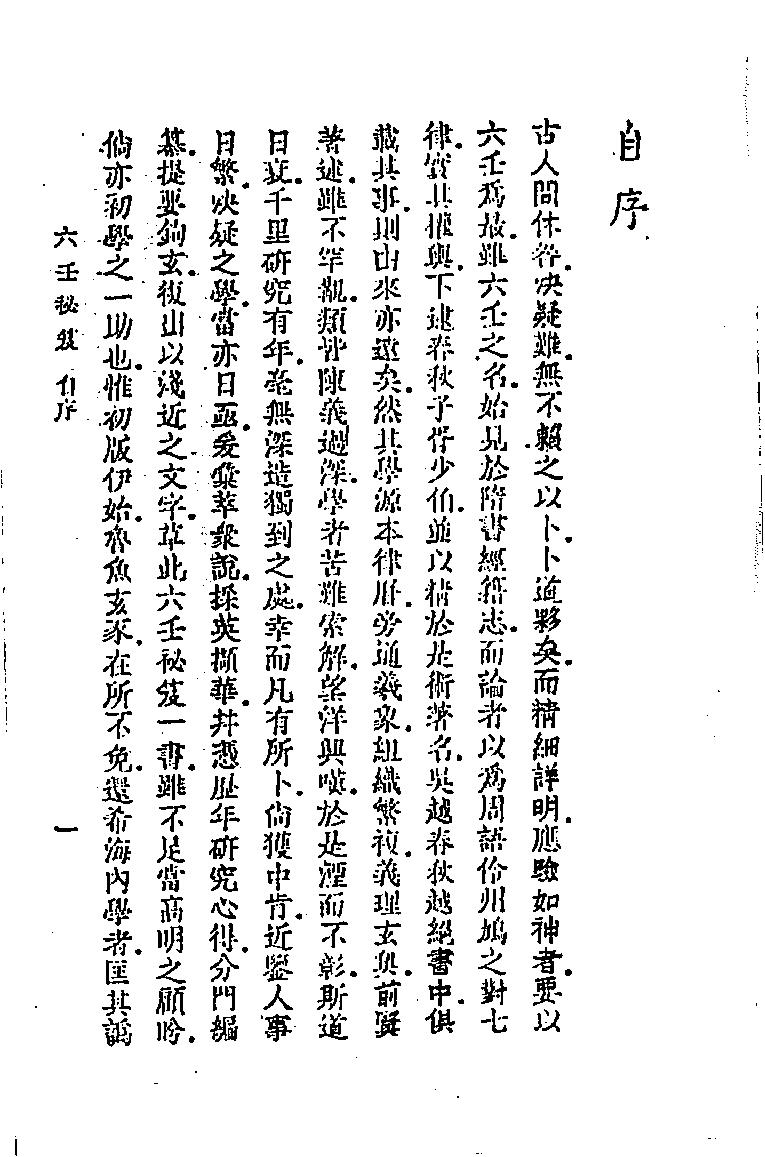 自序
古人問休咎.决疑難.無不賴之以卜.卜道夥矣.而精細詳明.應驗如神者.要以
六壬爲最.難六壬之名.始見於隋書經籍志.而論者以爲周語伶州鳩之對七
律.實其權輿.下逮春秋.子胥少伯.並以精於是術著名.吳越春秋越絕書中.俱
載其事.則由來亦遠矣.然其學源本律曆.旁通羲象.組織繁複.義理玄奧.前賢
著述.雖不罕覯.類皆陳義過深.學者苦難索解.望洋興嘆.於是湮而不彰.斯道
日衰.千里研究有年.毫無深造獨到之處.幸而凡有所卜.倘獲中肯.近鑒人事
日繁.决疑之學.當亦日亟.爰彙萃衆說.採英擷華.幷憑歷年研究心得.分門編
纂.提要鉤玄.復出以淺近之文字.草此六壬祕笈一書.雖不足當高明之顧盼.
倘亦初學之一助也.惟初版伊始.魯魚玄豕.在所不免.還希海內學者.匡其譌
六壬祕笈 自序
一